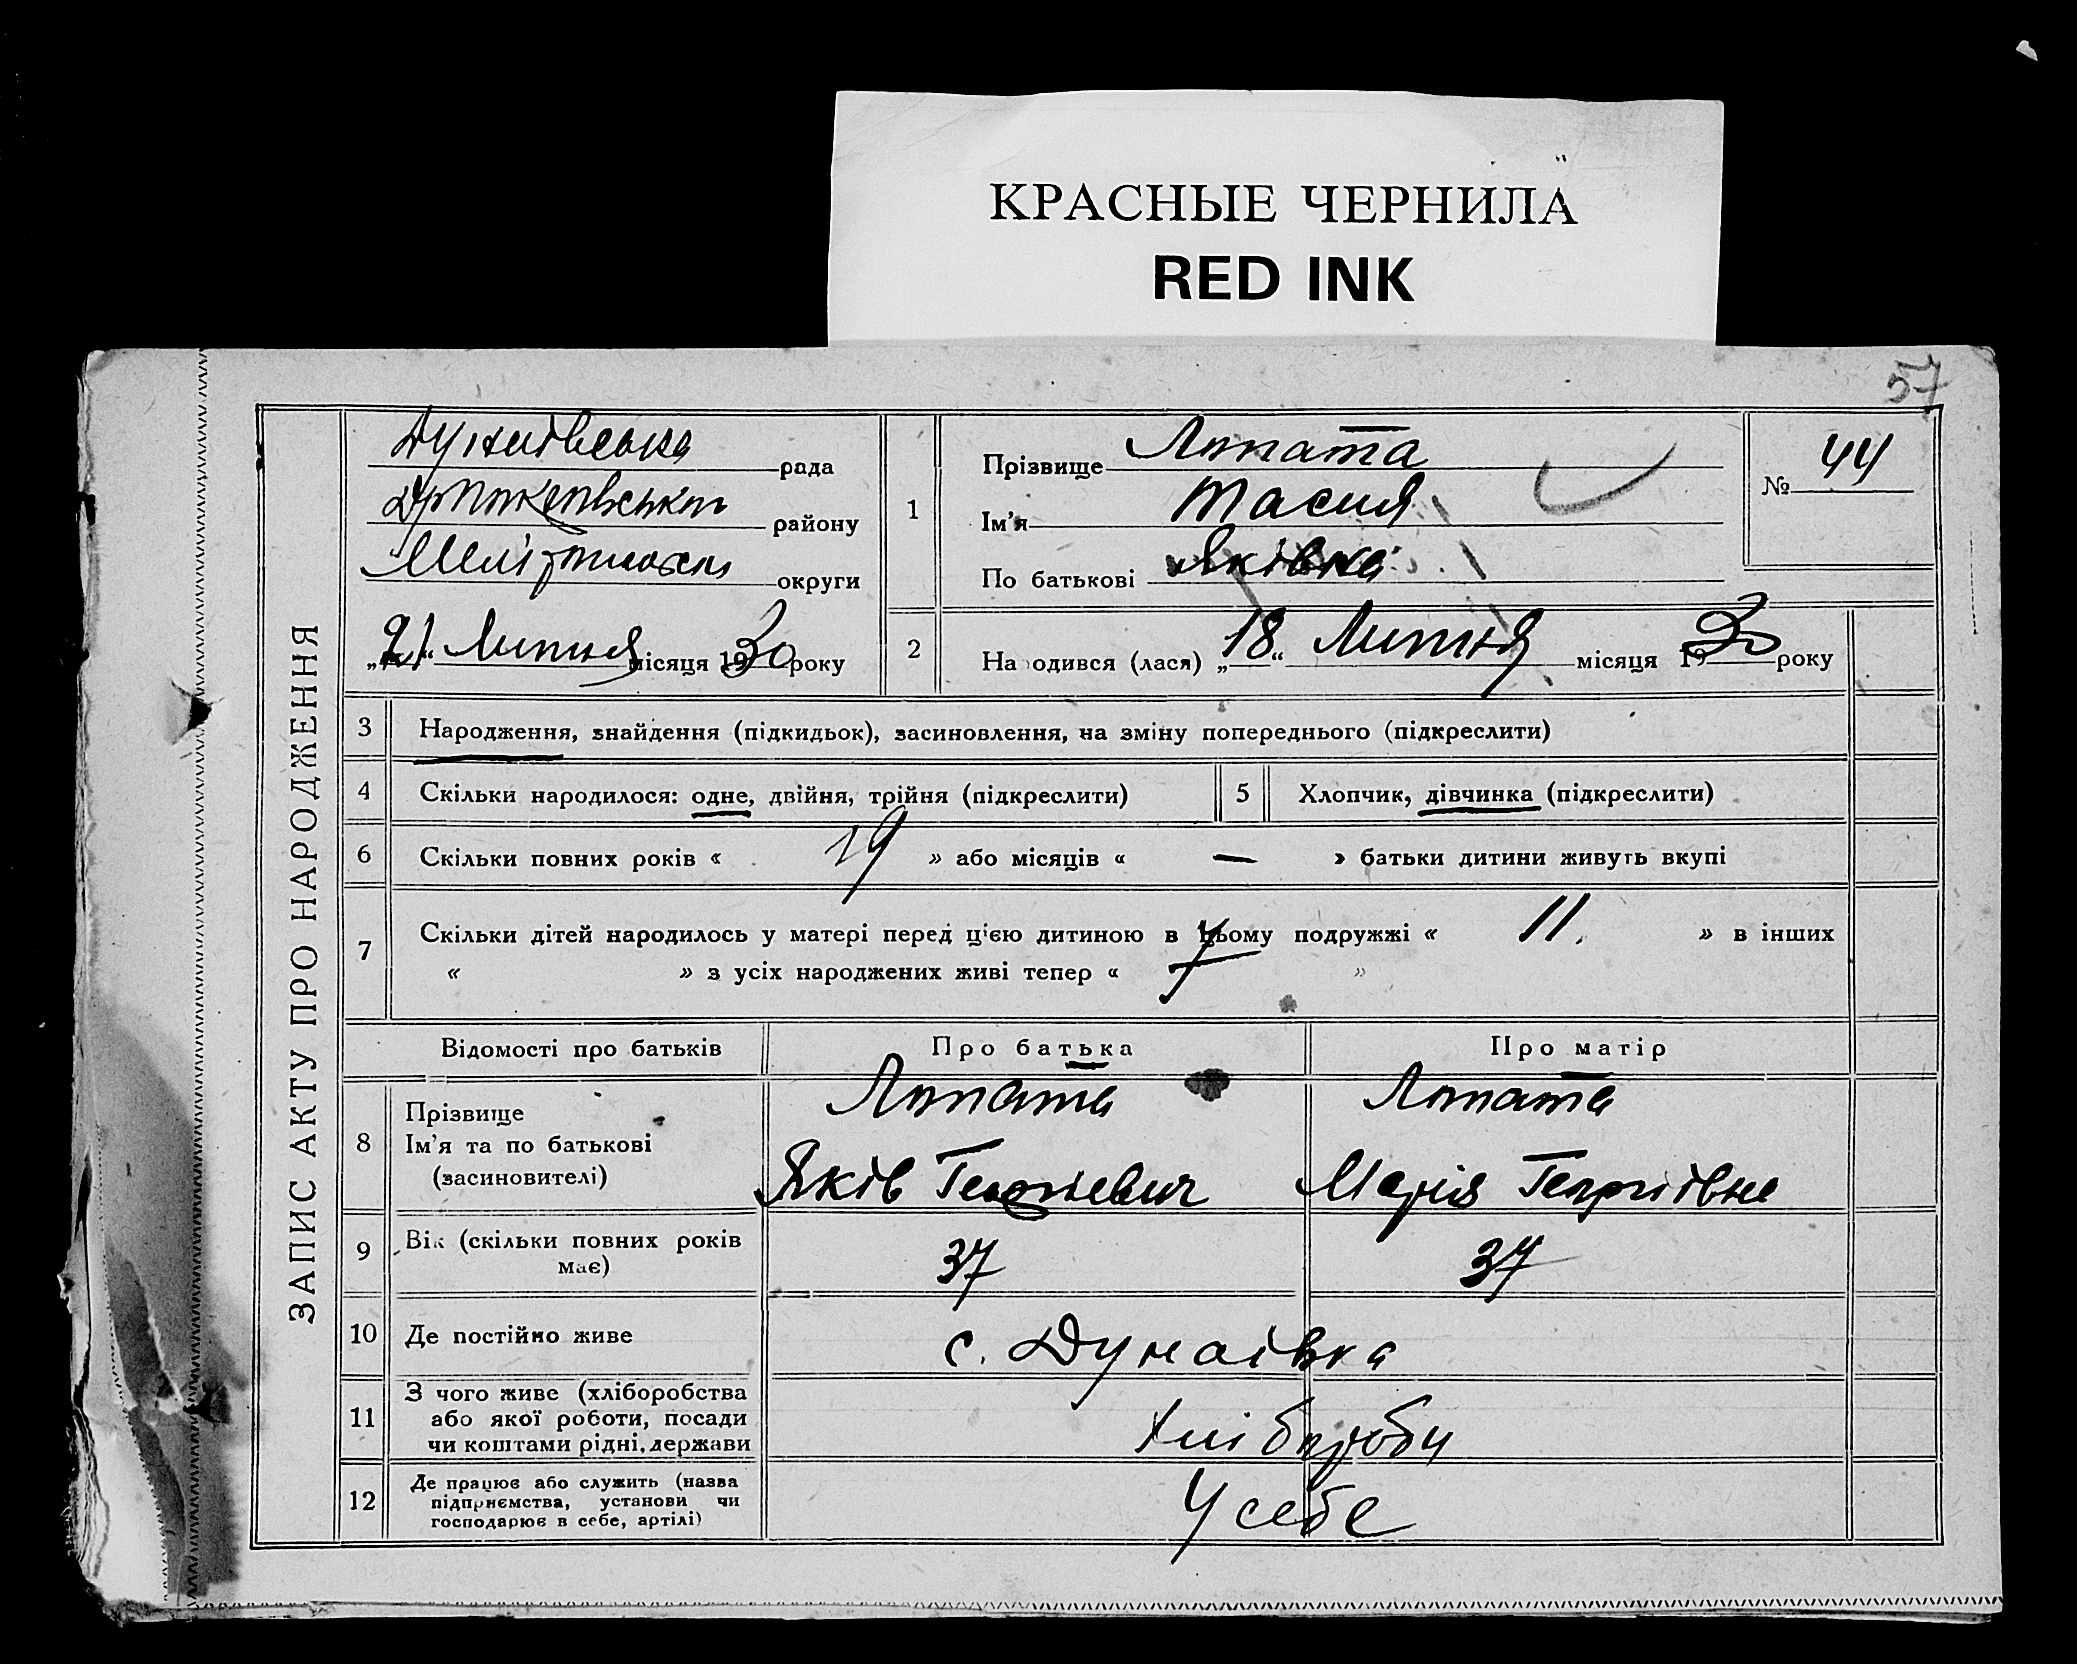 КРАСНЫЕ ЧЕРНИЛА
RED INK
57
ЗАПИС АКТУ ПРО НАРОДЖЕННЯ
рада
району
округи
„21“ Липня місяця 1930 року
1
Прізвище Лопата
Ім'я Тасия
По батькові Яківна
№ 44
2
На одився (лася) „18“ Липня місяця 1930 року
3 Народження, знайдення (підкидьок), засиновлення, на зміну попереднього (підкреслити)
4 Скільки народилося: одне, двійня, трійня (підкреслити)
5 Хлопчик, дівчинка (підкреслити)
6 Скільки повних років « 19 » або місяців « — » батьки дитини живуть вкупі
7 Скільки дітей народилось у матері перед ц'єю дитиною в цьому подружжі « 11. » в інших
« » з усіх народжених живі тепер « 7 »
Відомості про батьків Про батька Про матір
8 Прізвище Лопата Лопата
Ім'я та по батькові
(засиновителі) Яків Георгиевич Марія Георгіівна
9 Вік (скільки повних років має) 37 37
10 Де постійно живе с. Дунаівка
11 З чого живе (хліборобства
або якої роботи, посади
чи коштами рідні, держави Хлібороби
12 Де працює або служить (назва
підприємства, установи чи
господарює в себе, артілі) У себе